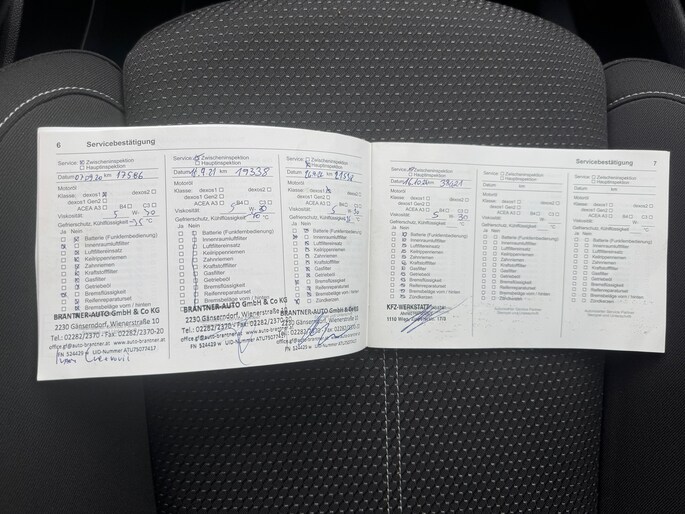 6 Servicebestätigung
Service: Zwischeninspektion
Hauptinspektion
Datum 07.09.20 km 17586
Motoröl
Klasse: dexos1 dexos2
dexos1 Gen2
ACEA A3 B4 C3
Viskosität: 5 W- 30
Gefrierschutz, Kühlflüssigkeit °C
Ja Nein
Batterie (Funkfernbedienung)
Innenraumluftfilter
Luftfiltereinsatz
Keilrippenriemen
Zahnriemen
Kraftstofffilter
Gasfilter
Getriebeöl
Bremsflüssigkeit
Reifenreparaturset
Bremsbeläge vorn / hinten
BRANTNER-AUTO GmbH & Co KG
2230 Gänserndorf, Wienerstraße 10
Tel.: 02282/2370 - Fax: 02282/2370-20
office.gf@auto-brantner.at www.auto-brantner.at
FN 524429 w UID-Nummer ATU75077417
Service: Zwischeninspektion
Hauptinspektion
Datum 9.21 km 19338
Motoröl
Klasse: dexos1 dexos2
dexos1 Gen2
ACEA A3 B4 C3
Viskosität: 5 W- 30
Gefrierschutz, Kühlflüssigkeit °C
Ja Nein
Batterie (Funkfernbedienung)
Innenraumluftfilter
Luftfiltereinsatz
Keilrippenriemen
Zahnriemen
Kraftstofffilter
Gasfilter
Getriebeöl
Bremsflüssigkeit
Reifenreparaturset
Bremsbeläge vorn / hinten
BRANTNER-AUTO GmbH & Co KG
2230 Gänserndorf, Wienerstraße 10
Tel.: 02282/2370 - Fax: 02282/2370-20
office.gf@auto-brantner.at
FN 524429 w UID-Nummer ATU75077417
Service: Zwischeninspektion
Hauptinspektion
Datum km
Motoröl
Klasse: dexos1 dexos2
dexos1 Gen2
ACEA A3 B4 C3
Viskosität: 5 W- 30
Gefrierschutz, Kühlflüssigkeit °C
Ja Nein
Batterie (Funkfernbedienung)
Innenraumluftfilter
Luftfiltereinsatz
Keilrippenriemen
Zahnriemen
Kraftstofffilter
Gasfilter
Getriebeöl
Bremsflüssigkeit
Reifenreparaturset
Bremsbeläge vorn / hinten
BRANTNER-AUTO GmbH & Co KG
Servicebestätigung 7
Service: Zwischeninspektion
Hauptinspektion
Datum km
Motoröl
Klasse: dexos1 dexos2
dexos1 Gen2
ACEA A3 B4 C3
Viskosität: 5 W- 30
Gefrierschutz, Kühlflüssigkeit °C
Ja Nein
Batterie (Funkfernbedienung)
Innenraumluftfilter
Luftfiltereinsatz
Keilrippenriemen
Zahnriemen
Kraftstofffilter
Gasfilter
Getriebeöl
Bremsflüssigkeit
Reifenreparaturset
Bremsbeläge vorn / hinten
Zündkerzen
KFZ-WERKSTATT
1110 Wien
Service: Zwischeninspektion
Hauptinspektion
Datum km
Motoröl
Klasse: dexos1 dexos2
dexos1 Gen2
ACEA A3 B4 C3
Viskosität: W-
Gefrierschutz, Kühlflüssigkeit °C
Ja Nein
Batterie (Funkfernbedienung)
Innenraumluftfilter
Luftfiltereinsatz
Keilrippenriemen
Zahnriemen
Kraftstofffilter
Gasfilter
Getriebeöl
Bremsflüssigkeit
Reifenreparaturset
Bremsbeläge vorn / hinten
Zündkerzen
Service: Zwischeninspektion
Hauptinspektion
Datum km
Motoröl
Klasse: dexos1 dexos2
dexos1 Gen2
ACEA A3 B4 C3
Viskosität: W-
Gefrierschutz, Kühlflüssigkeit °C
Ja Nein
Batterie (Funkfernbedienung)
Innenraumluftfilter
Luftfiltereinsatz
Keilrippenriemen
Zahnriemen
Kraftstofffilter
Gasfilter
Getriebeöl
Bremsflüssigkeit
Reifenreparaturset
Bremsbeläge vorn / hinten
Zündkerzen